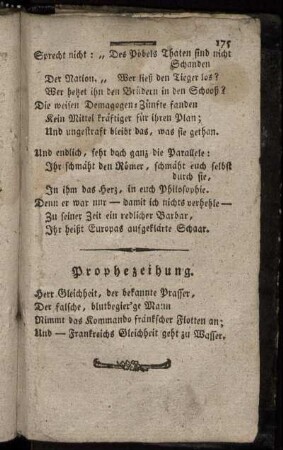 175
Sprecht nicht: „ Des Pöbels Thaten sind nicht
Schanden
Der Nation. „ Wer ließ den Tieger los?
Wer hetzet ihn den Brüdern in den Schooß?
Die weisen Demagogen-Zünfte fanden
Kein Mittel kräftiger für ihren Plan;
Und ungestraft bleibt das, was sie gethan.
Und endlich, seht doch ganz die Parallele:
Ihr schmäht den Römer, schmäht euch selbst
durch sie,
In ihm das Herz, in euch Philosophie.
Denn er war nur — damit ich nichts verhehle —
Zu seiner Zeit ein redlicher Barbar,
Ihr heißt Europas aufgeklärte Schaar.
Prophezeihung.
Herr Gleichheit, der bekannte Prasser,
Der falsche, blutbegier'ge Mann
Nimmt das Kommando fränkscher Flotten an;
Und — Frankreichs Gleichheit geht zu Wasser.